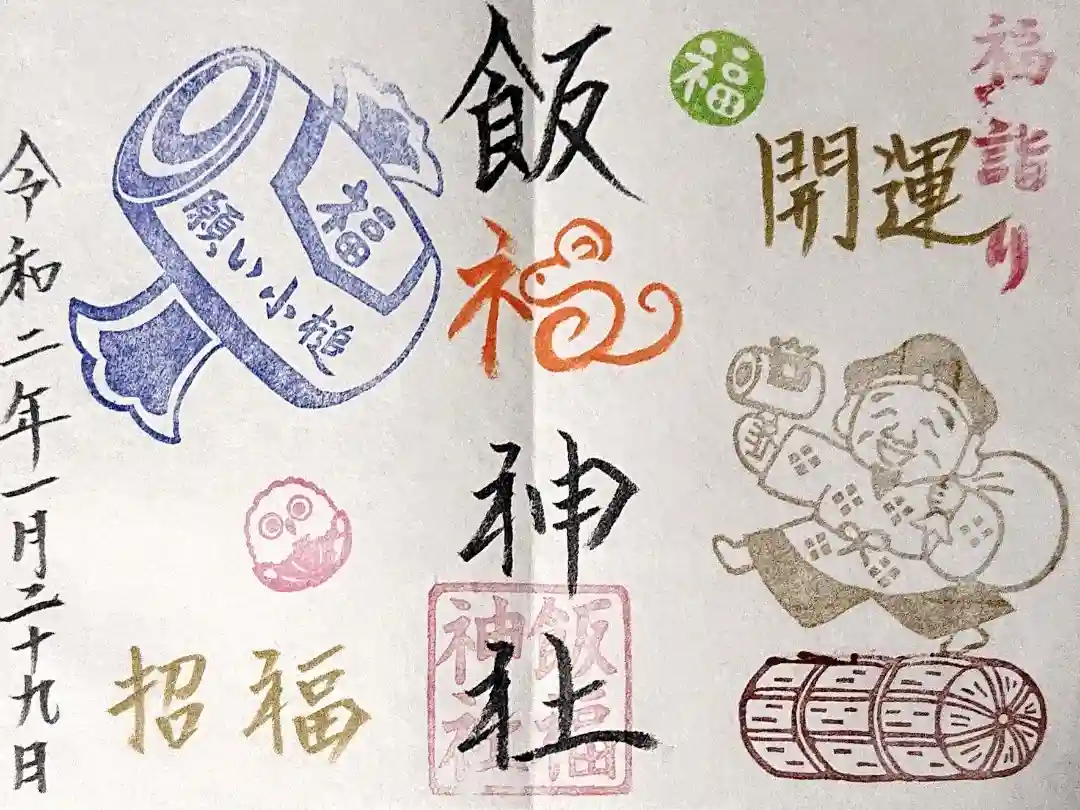 福詣り
開運
福
飯福神社
飯福神社
福
願い小槌
招福
令和二年一月二十九日